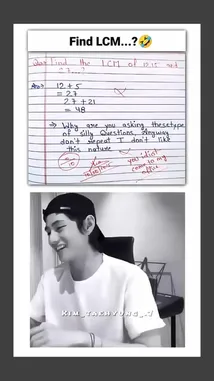 Find LCM...?🤣
Find the LCM of 12,15 and
27...?
12 + 5
= 27
27 + 21
= 48
→ Why are you asking these type
of silly Questions, Anyway
don't repeat I don't like
this nature
you didn't
come to my
office
KIM_TAEHYUNG_.7